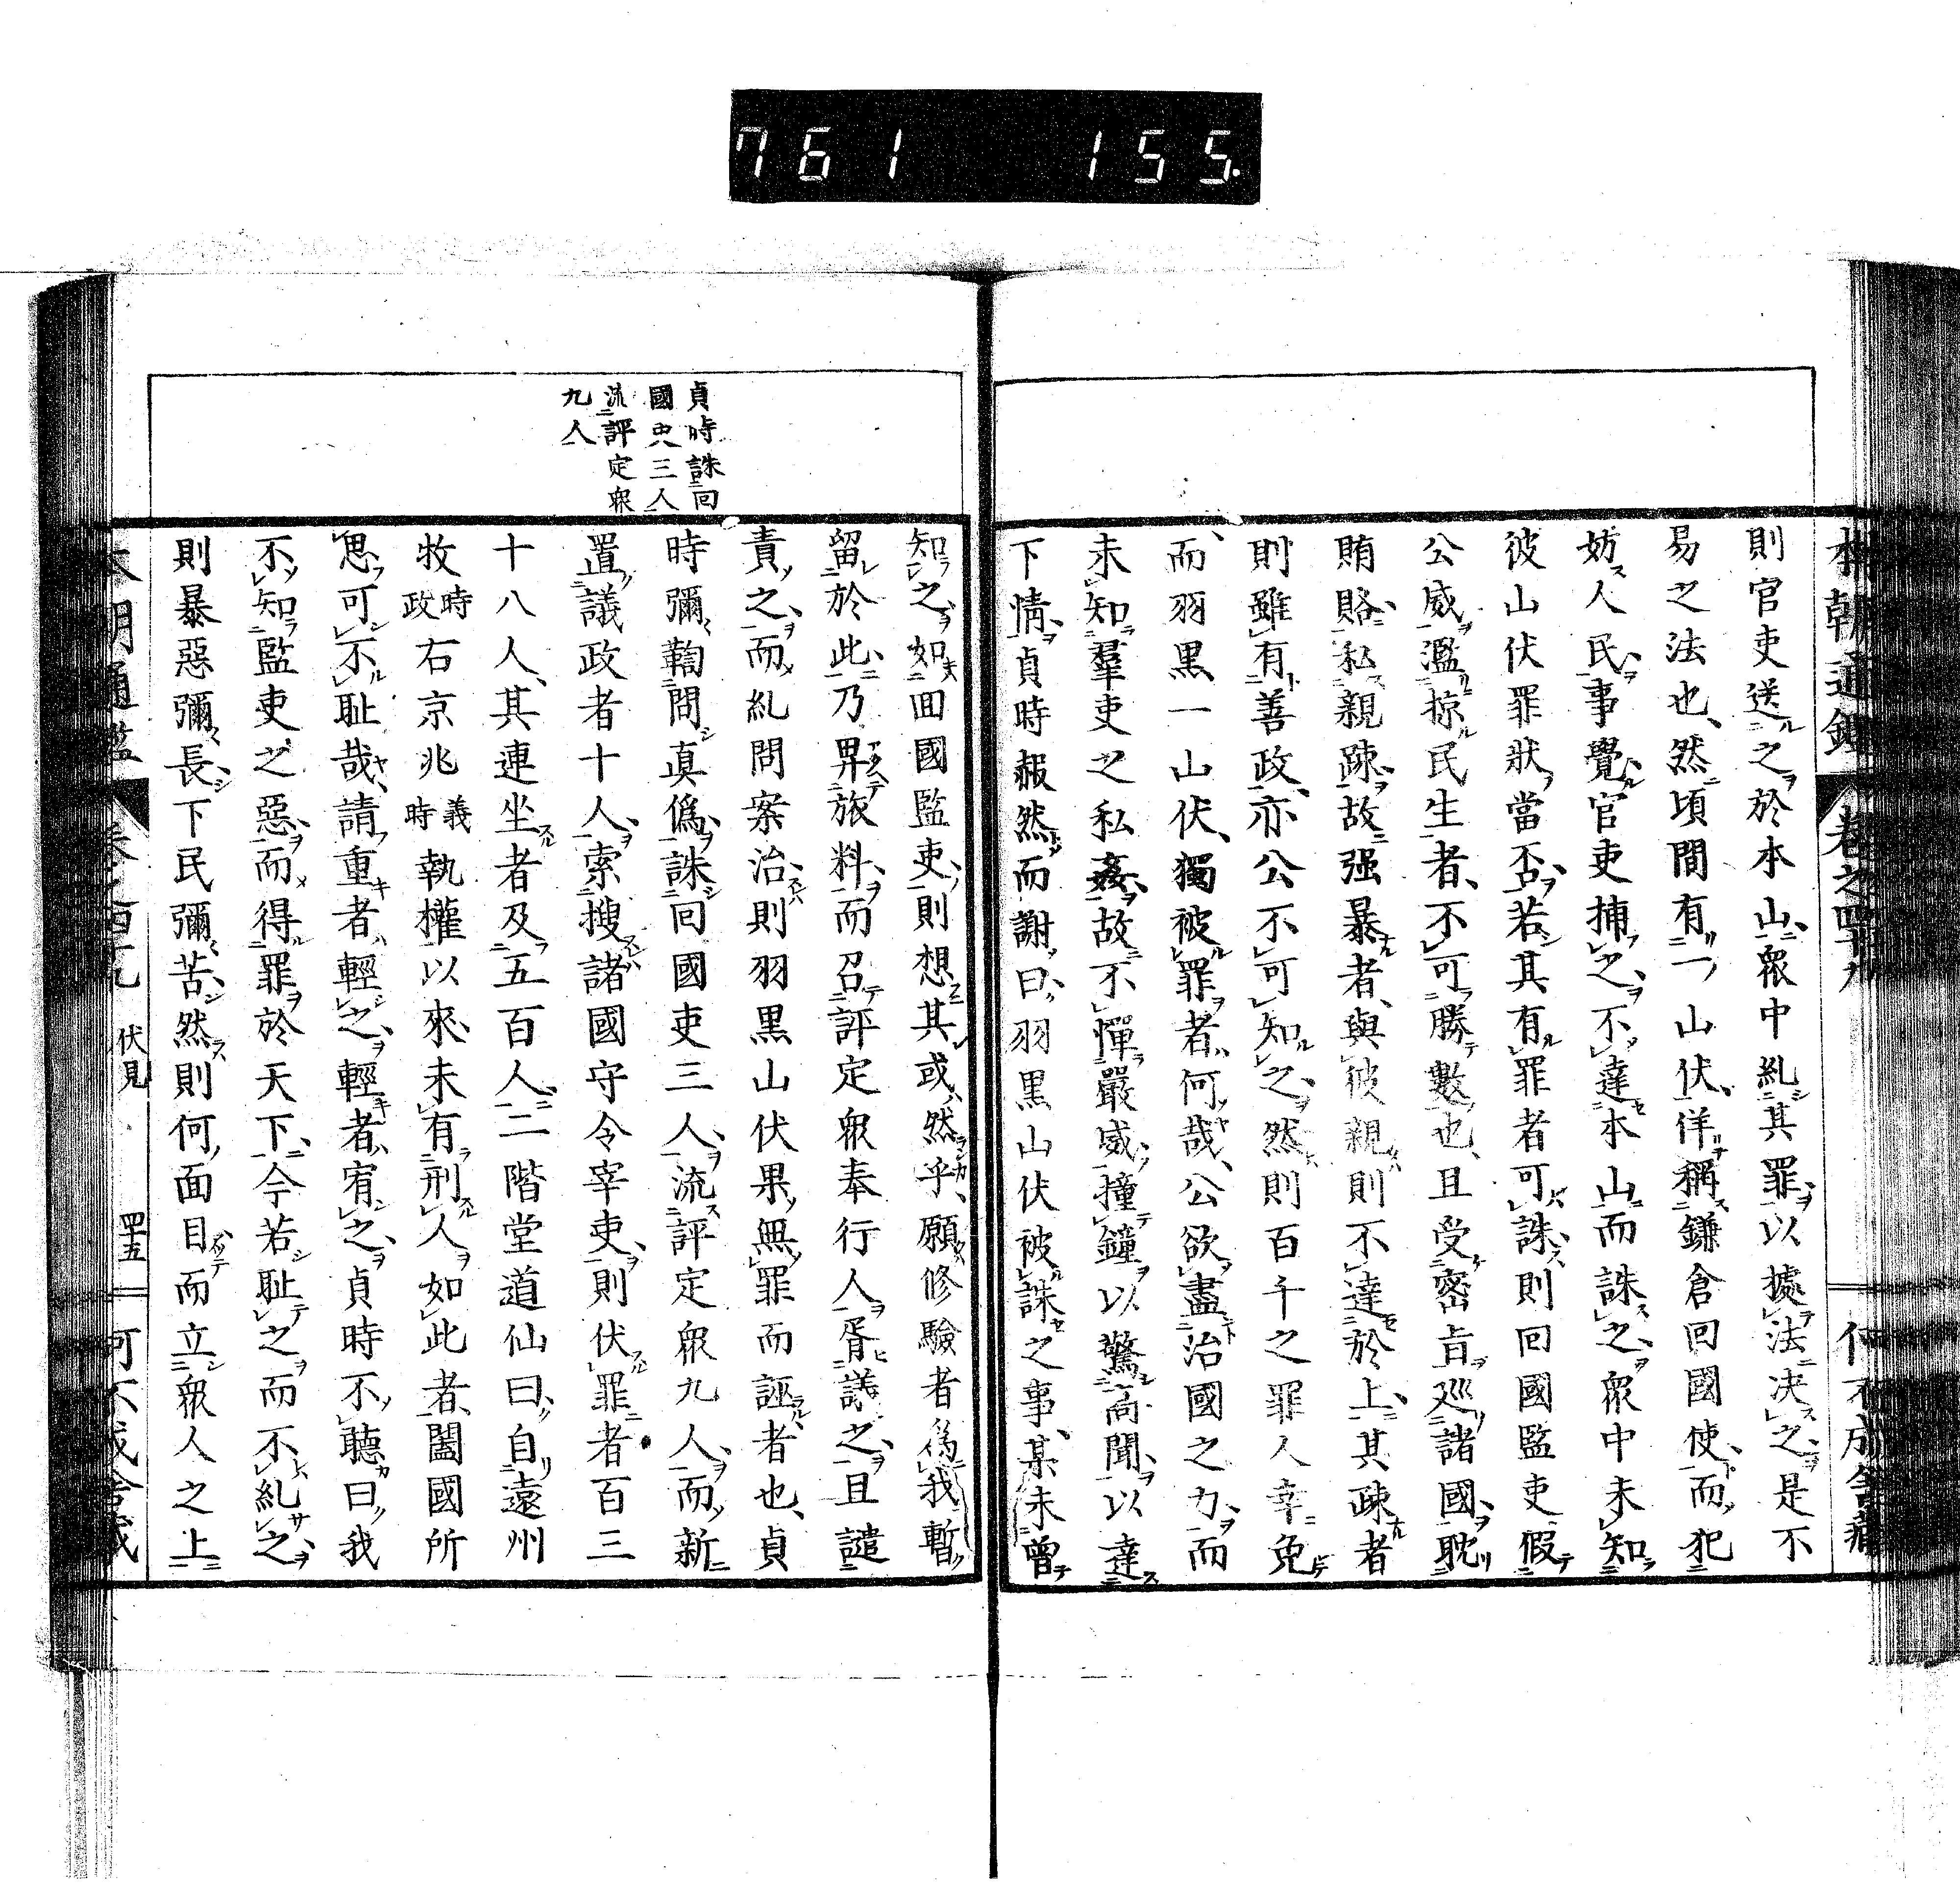 761 155.
本朝通鑑 卷之四十九 何不成舍藏
則官吏送之於本山衆中糺其罪以據法決之是不
易之法也然頃間有一山伏佯稱鎌倉回國使而犯
妨人民事覺官吏捕之不達本山而誅之衆中未知
彼山伏罪狀當否若其有罪者可誅則回國監吏假
公威濫掠民生者不可勝數也且受密旨巡諸國耽
賄賂私親疎故强暴者與彼親則不達於上其疎者
則雖有善政亦公不可知之然則百千之罪人幸免
而羽黒一山伏獨被罪者何哉公欲盡治國之力而
未知羣吏之私姦故不憚嚴威撞鐘以驚高聞以達
下情貞時赧然而謝曰羽黒山伏被誅之事某未曾
貞時誅回
國吏三人
流評定衆
九人
知之如回國監吏則想其或然乎願修驗者爲我暫
留於此乃畀旅料而召評定衆奉行人胥議之且譴
責之而糺問案治則羽黒山伏果無罪而誣者也貞
時彌鞫問眞僞誅回國吏三人流評定衆九人而新
置議政者十人索搜諸國守令宰吏則伏罪者百三
十八人其連坐者及五百人二階堂道仙曰自遠州
牧時政右京兆義時執權以來未有刑人如此者闔國所
思可不耻哉請重者輕之輕者宥之貞時不聽曰我
不知監吏之惡而得罪於天下今若耻之而不糺之
則暴惡彌長下民彌苦然則何面目而立衆人之上
本朝通鑑 卷之四十九 伏見 四十五 何不成舍藏